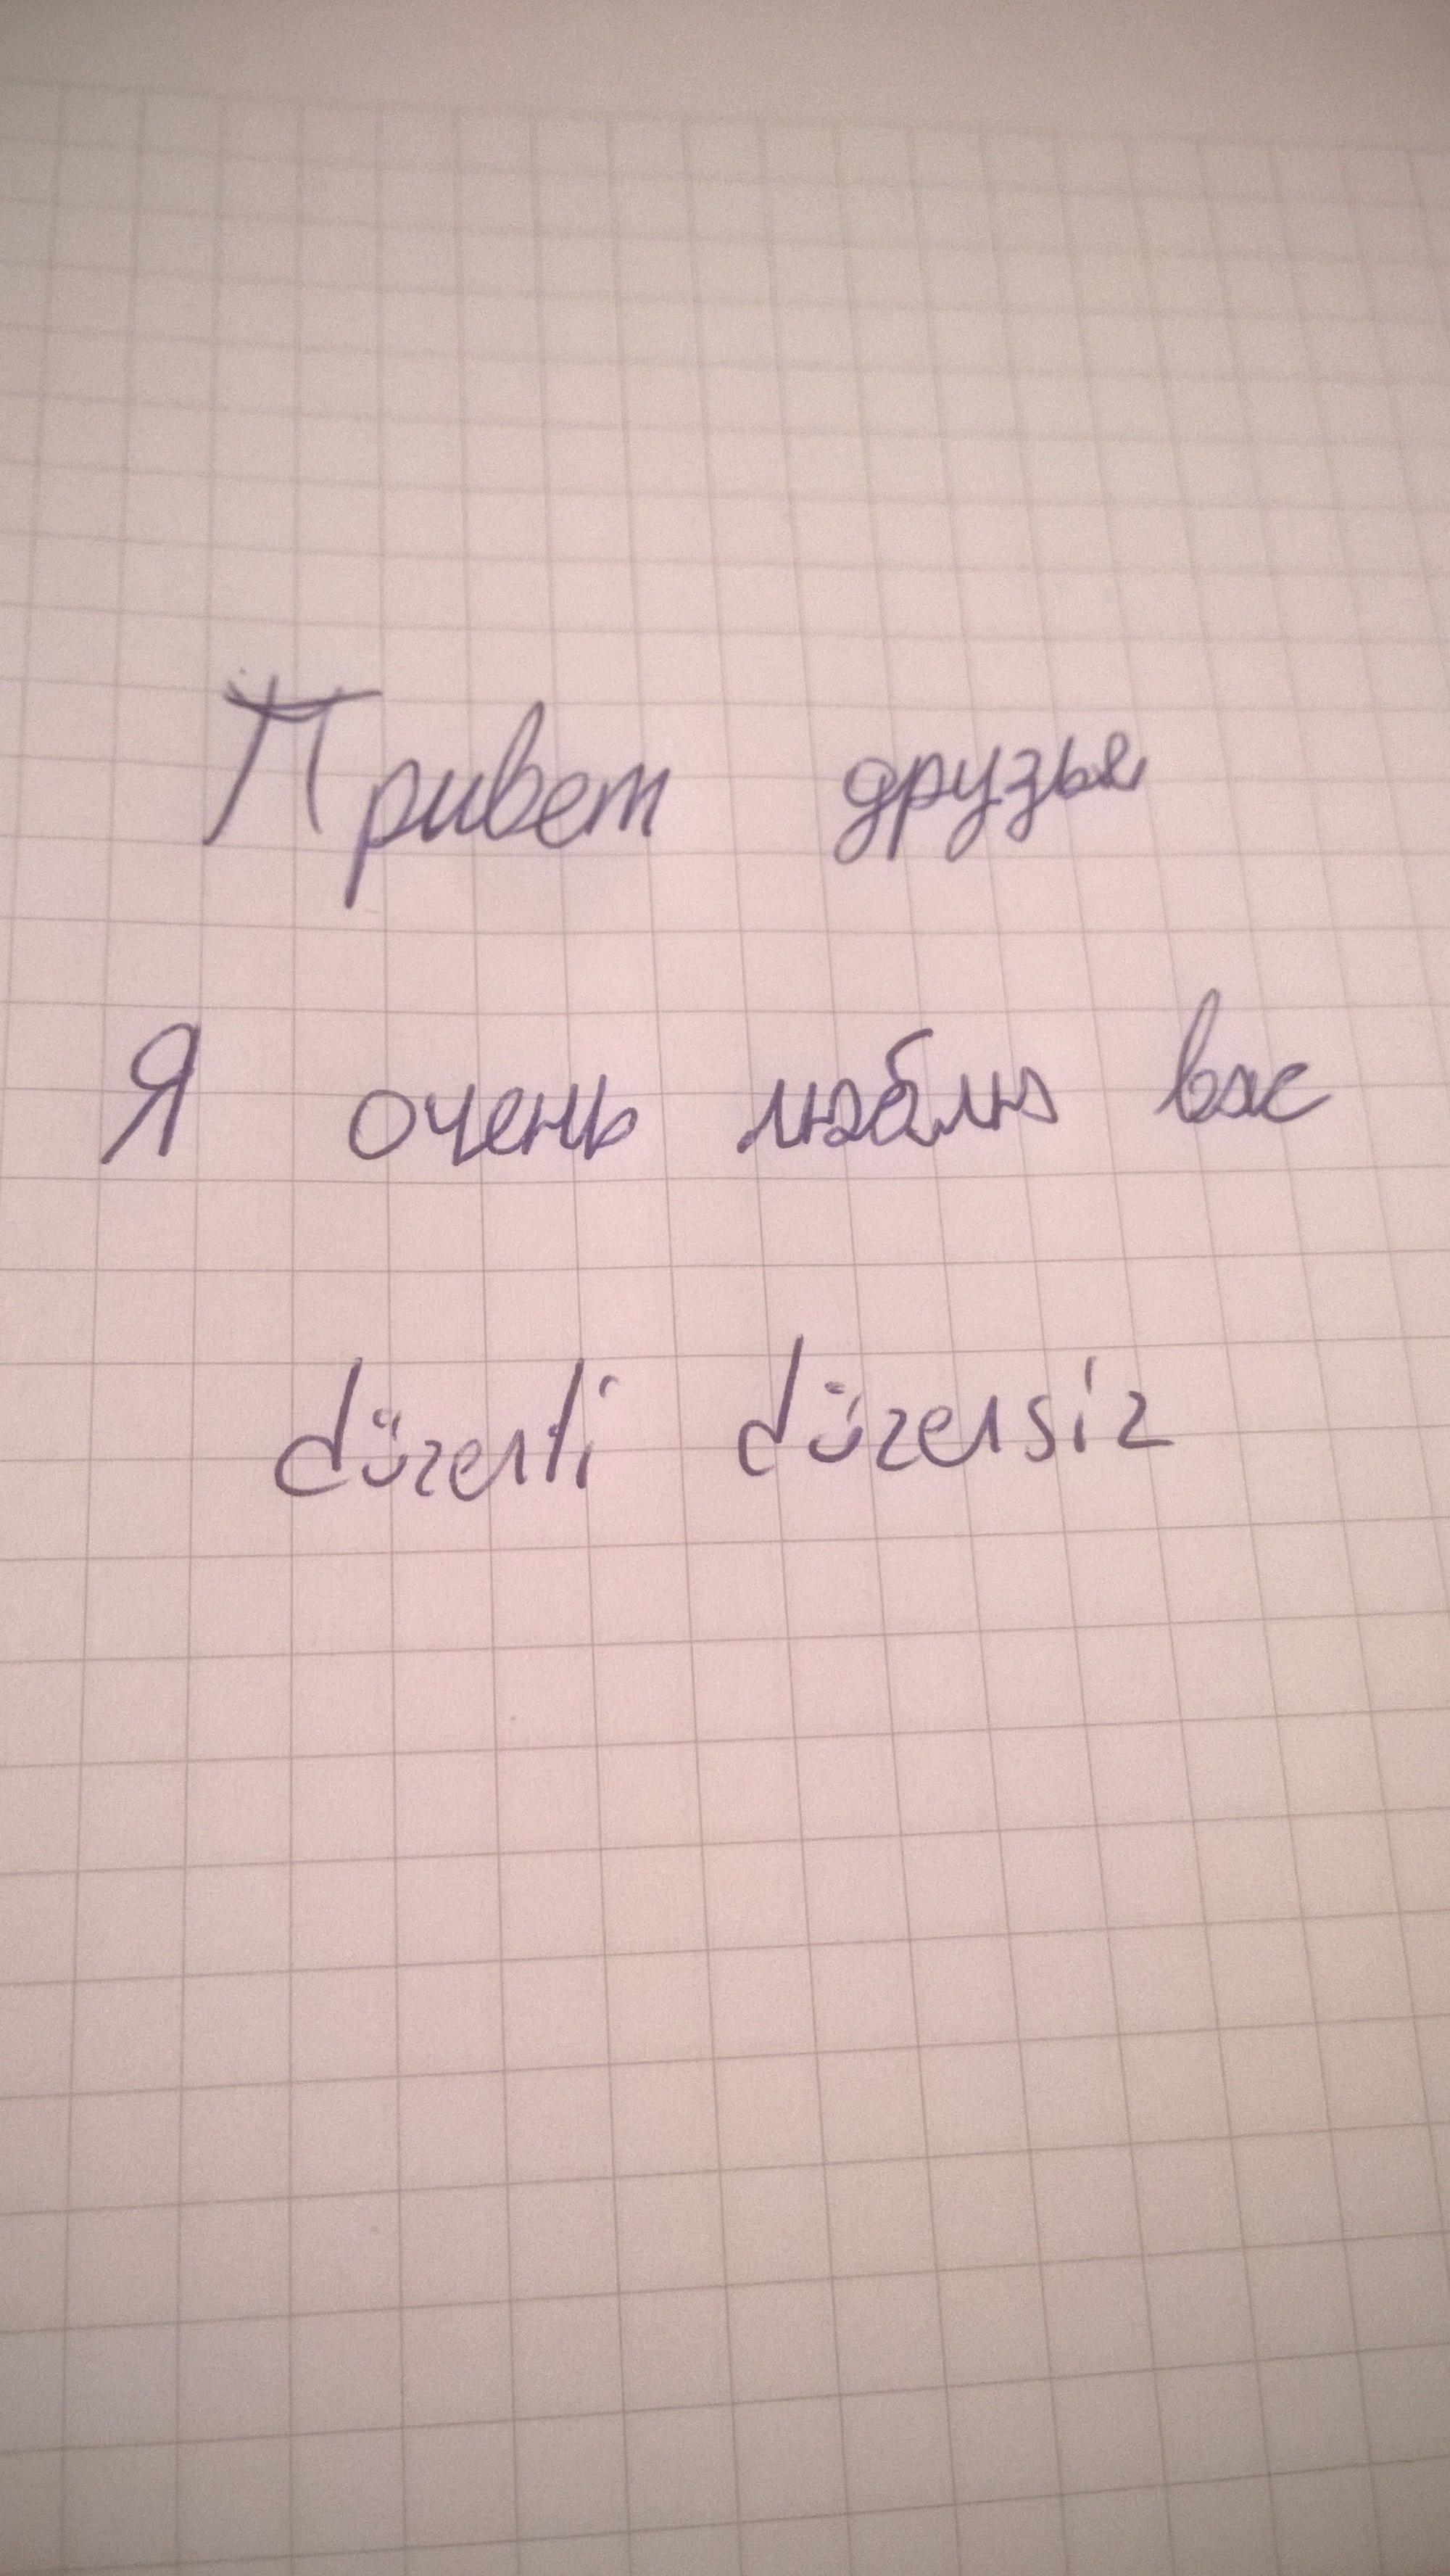 Привет друзья
Я очень люблю вас
düzenli düzensiz